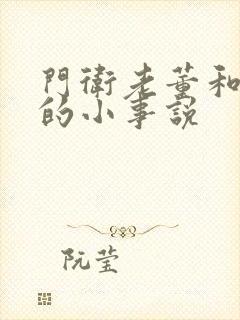 門衛老董和
的小事說
阮莹